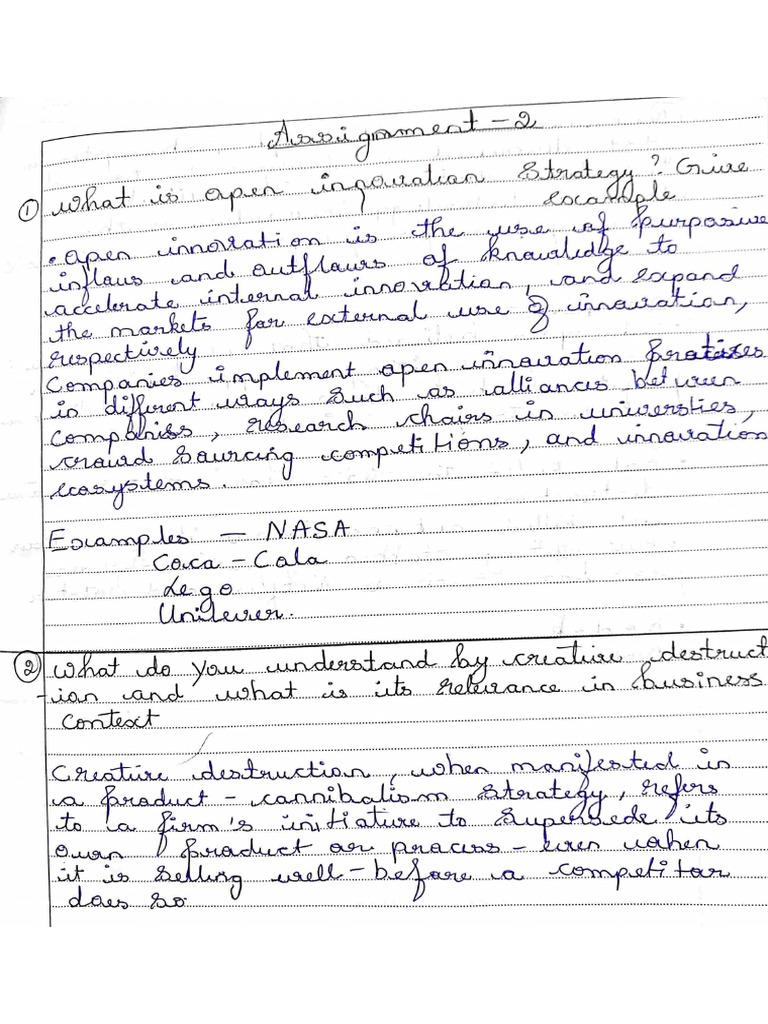 Assignment - 2
① What is open innovation Strategy? Give
example
• Open innovation is the use of purposive
inflows and outflows of knowledge to
accelerate internal innovation, and expand
the markets for external use of innovation,
respectively
Companies implement open innovation
in different ways such as alliances between
companies, research chairs in universties,
crowd sourcing competitions, and innovation
ecosystems.
Examples — NASA
Coca - Cola
Lego
Unilever.
② What do you understand by creative destruct
-ion and what is its relevance in business
context
Creative destruction, when manifested in
a product - cannibalism strategy, refers
to a firm's initiative to supersede its
own product or process - even when
it is selling well - before a competitor
does so